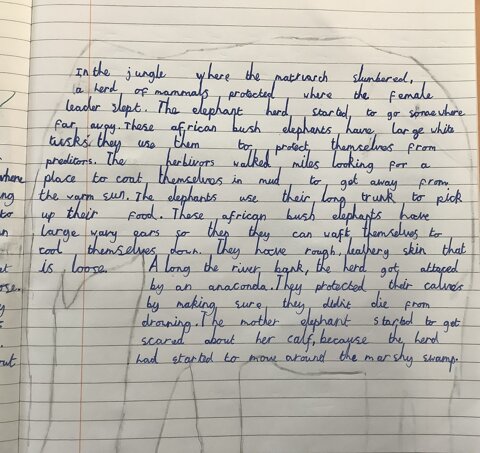 In the jungle where the matriarch slumbered,
a herd of mammals protected where the female
leader slept. The elephant herd started to go somewhere
far away. These african bush elephants have large white
tusks they use them to protect themselves from
preditors. The herbivors walked miles looking for a
place to coat themselves in mud to get away from
where
the warm sun. The elephants use their long trunk to pick
ng
up their food. These african bush elephants have
to
large wavy ears so then they can waft themselves to
n
cool themselves down. They have rough, leathery skin that
is loose. Along the river bank, the herd got attaced
et
by an anaconda. They protected their calves
ose.
by making sure they didn't die from
drowning. The mother elephant started to get
scared about her calf, because the herd
had started to move around the marshy swamp.
out